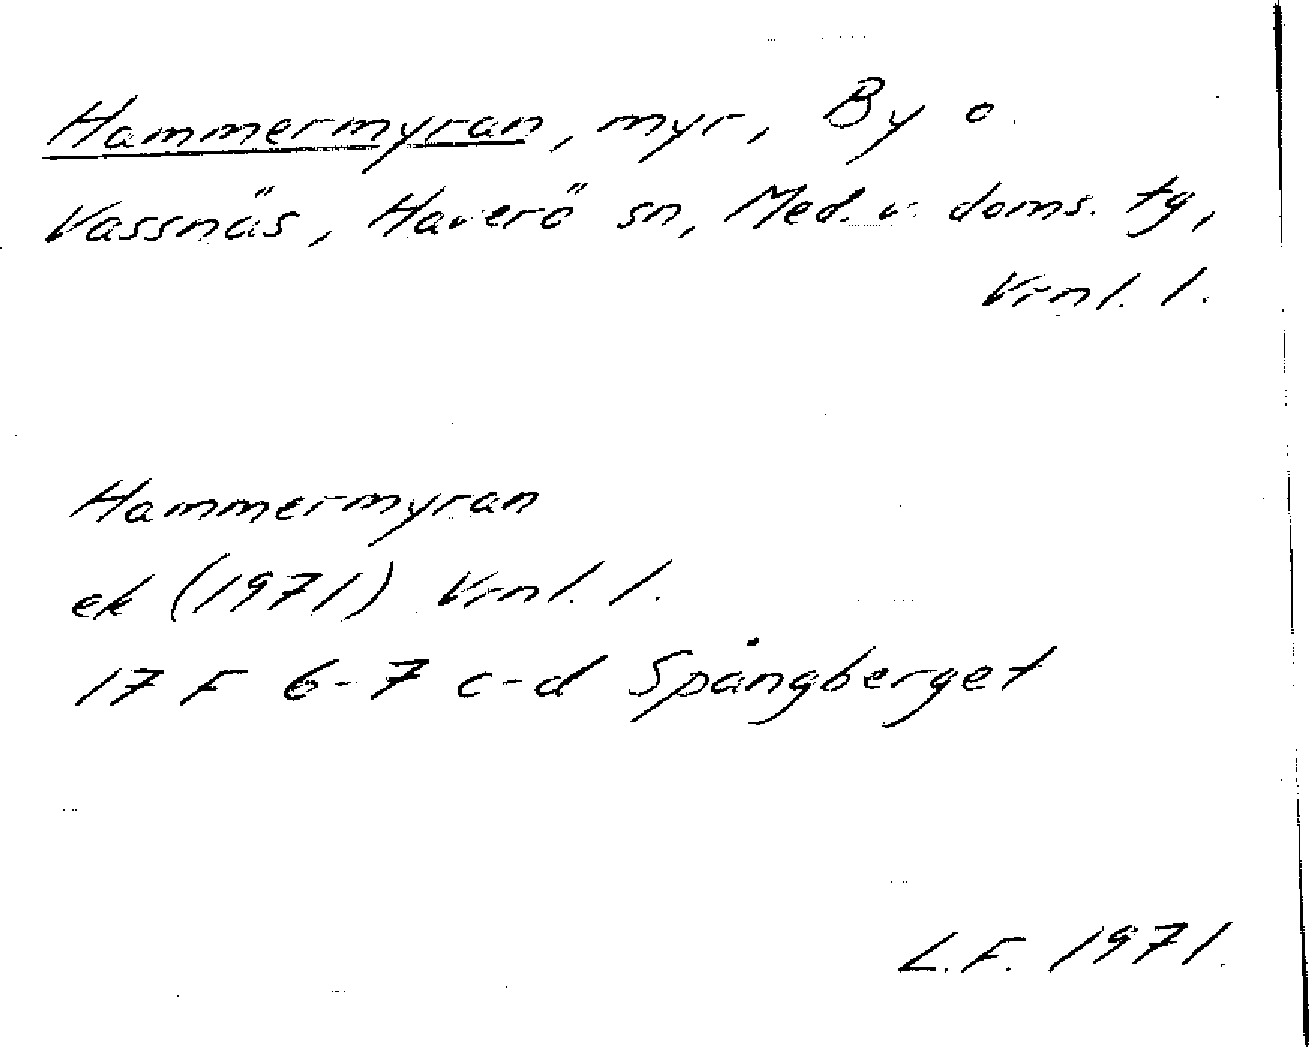 Hammermyran, myr, By o.
Vassnäs, Haverö sn, Med. v. doms. tg,
Vrnl. l.
Hammermyran
ek (1971) Vrnl. l.
17 F 6-7 c-d Spångberget
L.F. 1971.